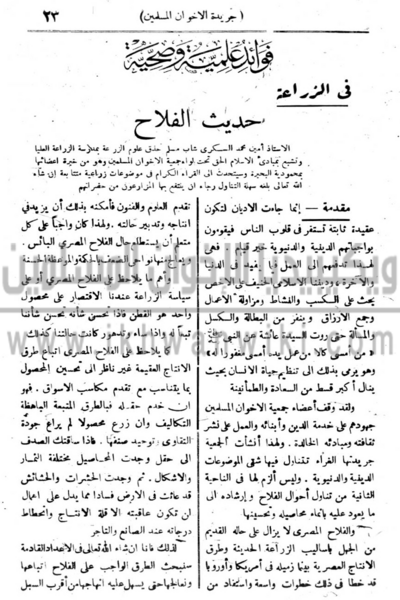 ( جريدة الاخوان المسلمين )
٢٣
فوائد علمية وصحية
فى الزراعة
حديث الفلاح
الاستاذ أمين محمد السكرى شاب مسلم حذق علوم الزراعة بمدرسة الزراعة العليا
وتشبع بمبادىء الاسلام الحق تحت لواء جمعية الاخوان المسلمين وهو من خيرة اعضائها
بمحمودية البحيرة وسيتحدث الى القراء الكرام فى موضوعات زراعية متتابعة إن شاء
الله تعالى بلغة سهلة التناول رجاء ان ينتفع بها المزارعون من حضراتهم
مقدمة — إنما جاءت الاديان لتكون
عقيدة ثابتة تستقر فى قلوب الناس فيقومون
بواجباتهم الدينية والدنيوية خير قيام . فهى
لهذا تدفعهم الى العمل لما يفيد فى الدنيا
والآخرة ، وديننا الاسلامى الحنيف على الاخص
يحث على الكسب والنشاط ومزاولة الأعمال
وجمع الارزاق وينفر من البطالة والكسل
والمسألة حتى روت السيدة عائشة عن النبى
« من أمسى كالا من عمل يده أمسى مغفورا له »
وهو يرمى بذلك الى تنظيم حياة الانسان بحيث
ينال أكبر قسط من السعادة والطمأنينة
ولقد وقف أعضاء جمعية الاخوان المسلمين
جهودهم على خدمة الدين وأبنائه والعمل على نشر
ثقافته ومبادئه الخالدة . ولهذا أنشأت الجمعية
جريدتها الغراء تتناول فيها شتى الموضوعات
الدينية والدنيوية . وليس ألزم لها فى الناحية
الثانية من تناول أحوال الفلاح و إرشاده الى
ما يعود عليه بانماء محاصيله وتحسينها
والفلاح المصرى لا يزال على حاله القديم
من الجهل بأساليب الزراعة الحديثة وطرق
الانتاج العصرية بينما زميله فى أمريكا وأوروبا
قد خطا فى ذلك خطوات واسعة واستفاد من
تقدم العلوم والفنون ما أمكنه بذلك ان يزيد فى
انتاجه وتدبير حالته . ولهذا كان واجباً على كل
متعلم أن يستطلع حال الفلاح المصرى البائس .
منهاجى الضعف بالحكمة والموعظة الحسنة
وأهم ما يلاحظ على الفلاح المصرى أو على
سياسة الزراعة عندنا الاقتصار على محصول
واحد هو القطن فاذا تحسن شأنه تحسن شأننا
تبعاً له وإذا ساء وتدهور كانت حالتنا كذلك
كما يلاحظ على الفلاح المصرى اتباع طرق
الانتاج العقيمة غير ناظر الى تحسين المحصول
بما يتناسب مع تقدم مكاسب الاسواق . فهو
ان خدم حقله فبالطرق المتبعة الباهظة
التكاليف وان زرع محصولا لم يراع جودة
التقاوى وتوحيد صنفها . فاذا ساقتك الصدف
الى حقل وجدت المحاصيل مختلفة الثمار
والاشكال . ثم وجدت الحشرات والحشائش
قد عاثت فى الارض فسادا مما يدل على اهمال
لن تكون عاقبته الا قلة الانتاج وانحطاط
درجاته عند الصانع والتاجر
لذلك فانا ان شاء الله تعالى فى الاعداد القادمة
سنبحث الطرق الواجب على الفلاح اتباعها
ونعالجها حتى يسهل عليه انتهاجها من أقرب السبل